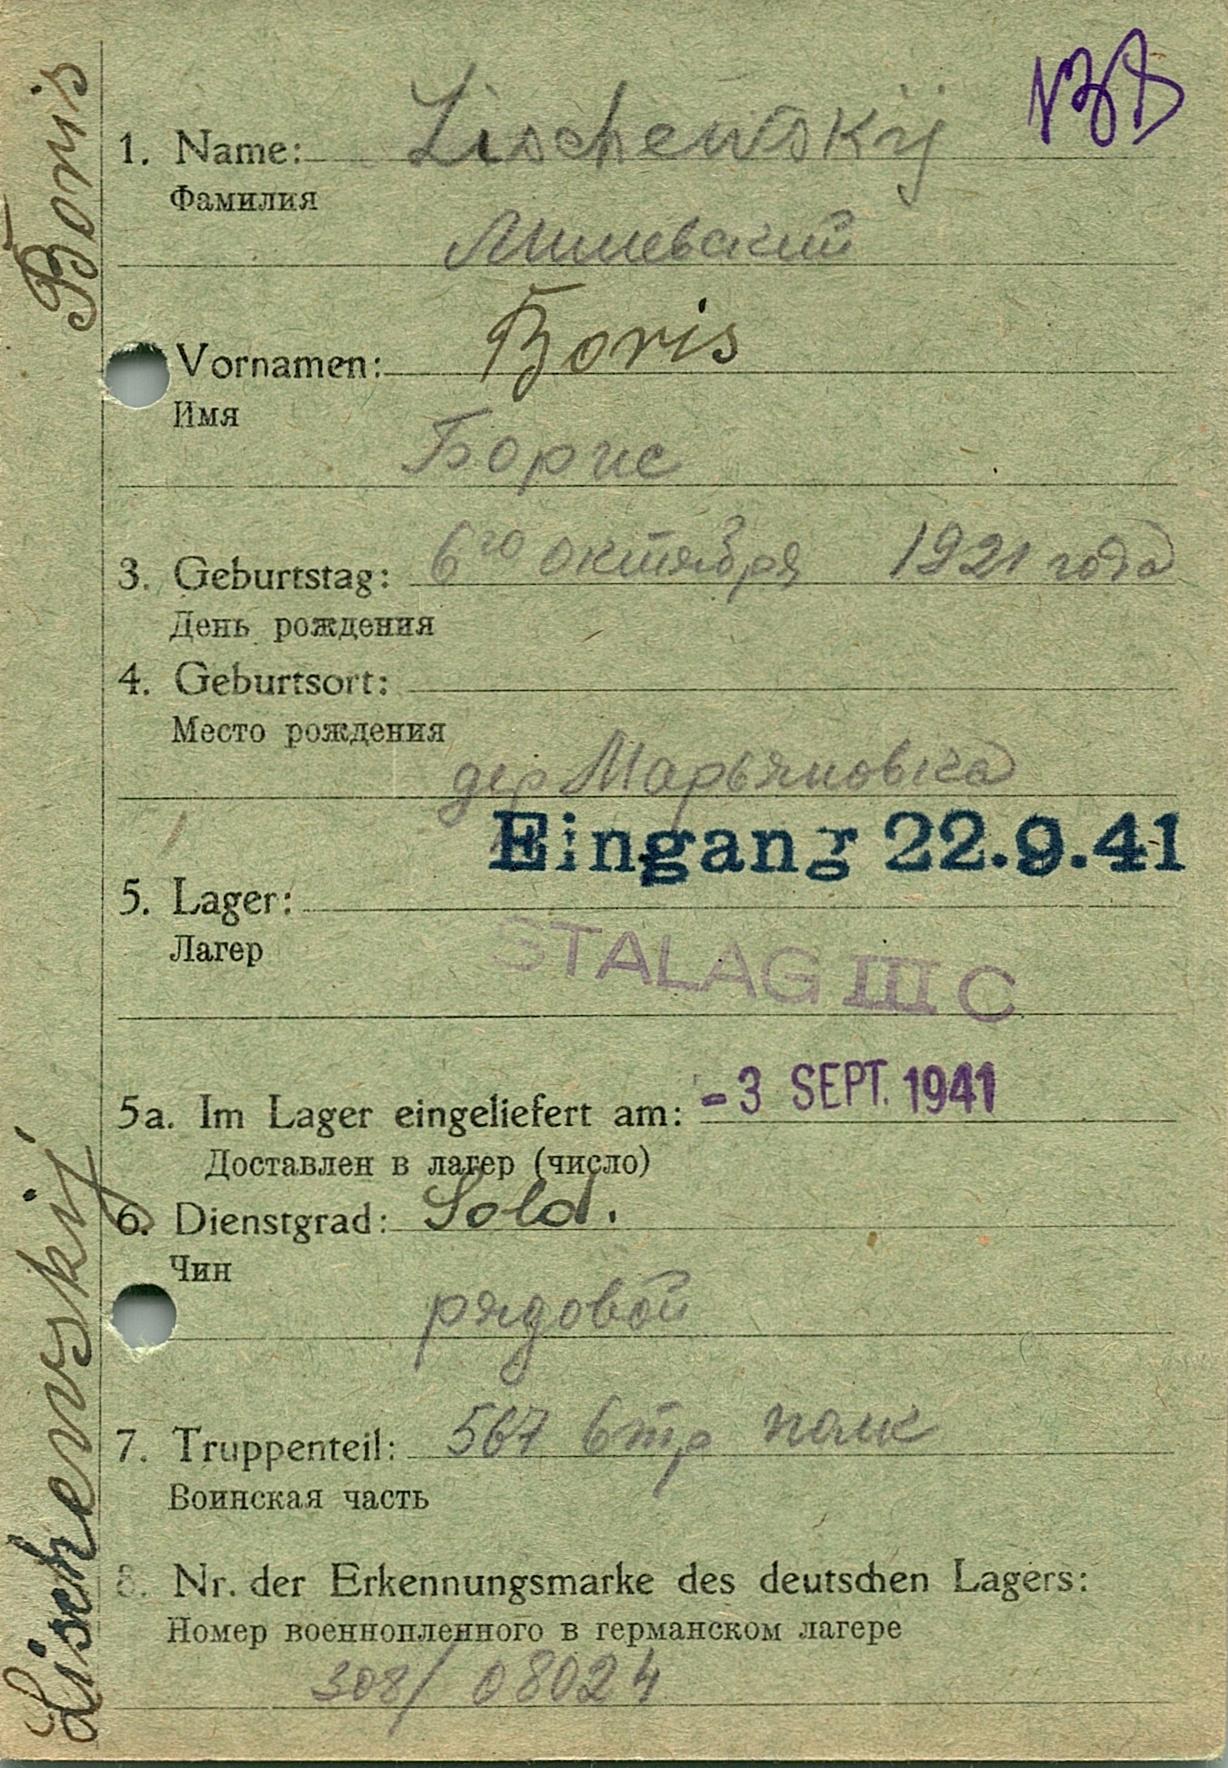 Lischewskij Boris
1. Name: Lischewskij
Фамилия
Лишевский
Vornamen: Boris
Имя
Борис
3. Geburtstag: 6го октября 1921 года
День рождения
4. Geburtsort:
Место рождения
дер Марьяновка
Eingang 22.9.41
5. Lager:
Лагер
STALAG III C
5a. Im Lager eingeliefert am: -3 SEPT. 1941
Доставлен в лагер (число)
6. Dienstgrad: Sold.
Чин
рядовой
7. Truppenteil: 567 стр полк
Воинская часть
8. Nr. der Erkennungsmarke des deutschen Lagers:
Номер военнопленного в германском лагере
308/ 08024